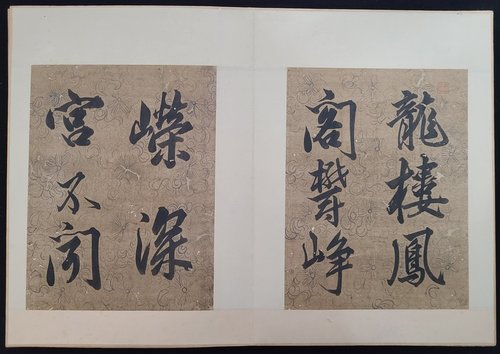 龍樓鳳
閣欝崢
嶸深
宮不聞